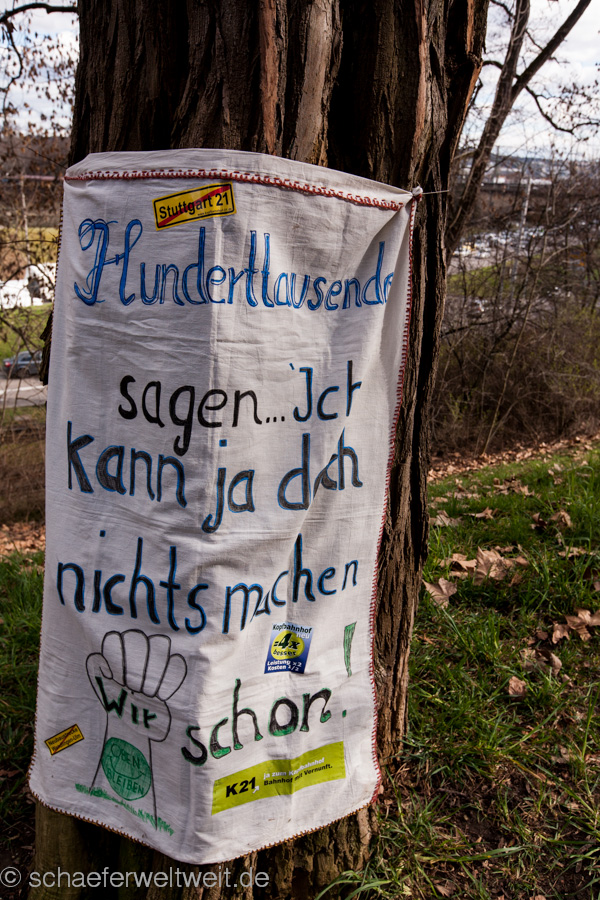 Stuttgart 21
Hunderttausende
sagen... Ich
kann ja doch
nichts machen
Kopfbahnhof
4x
besser
Leistung x2
Kosten 1/2
Wir
schon.!
OBEN
BLEIBEN
K21
Ja zum Kopfbahnhof
Bahnhof mit Vernunft.
© schaeferweltweit.de